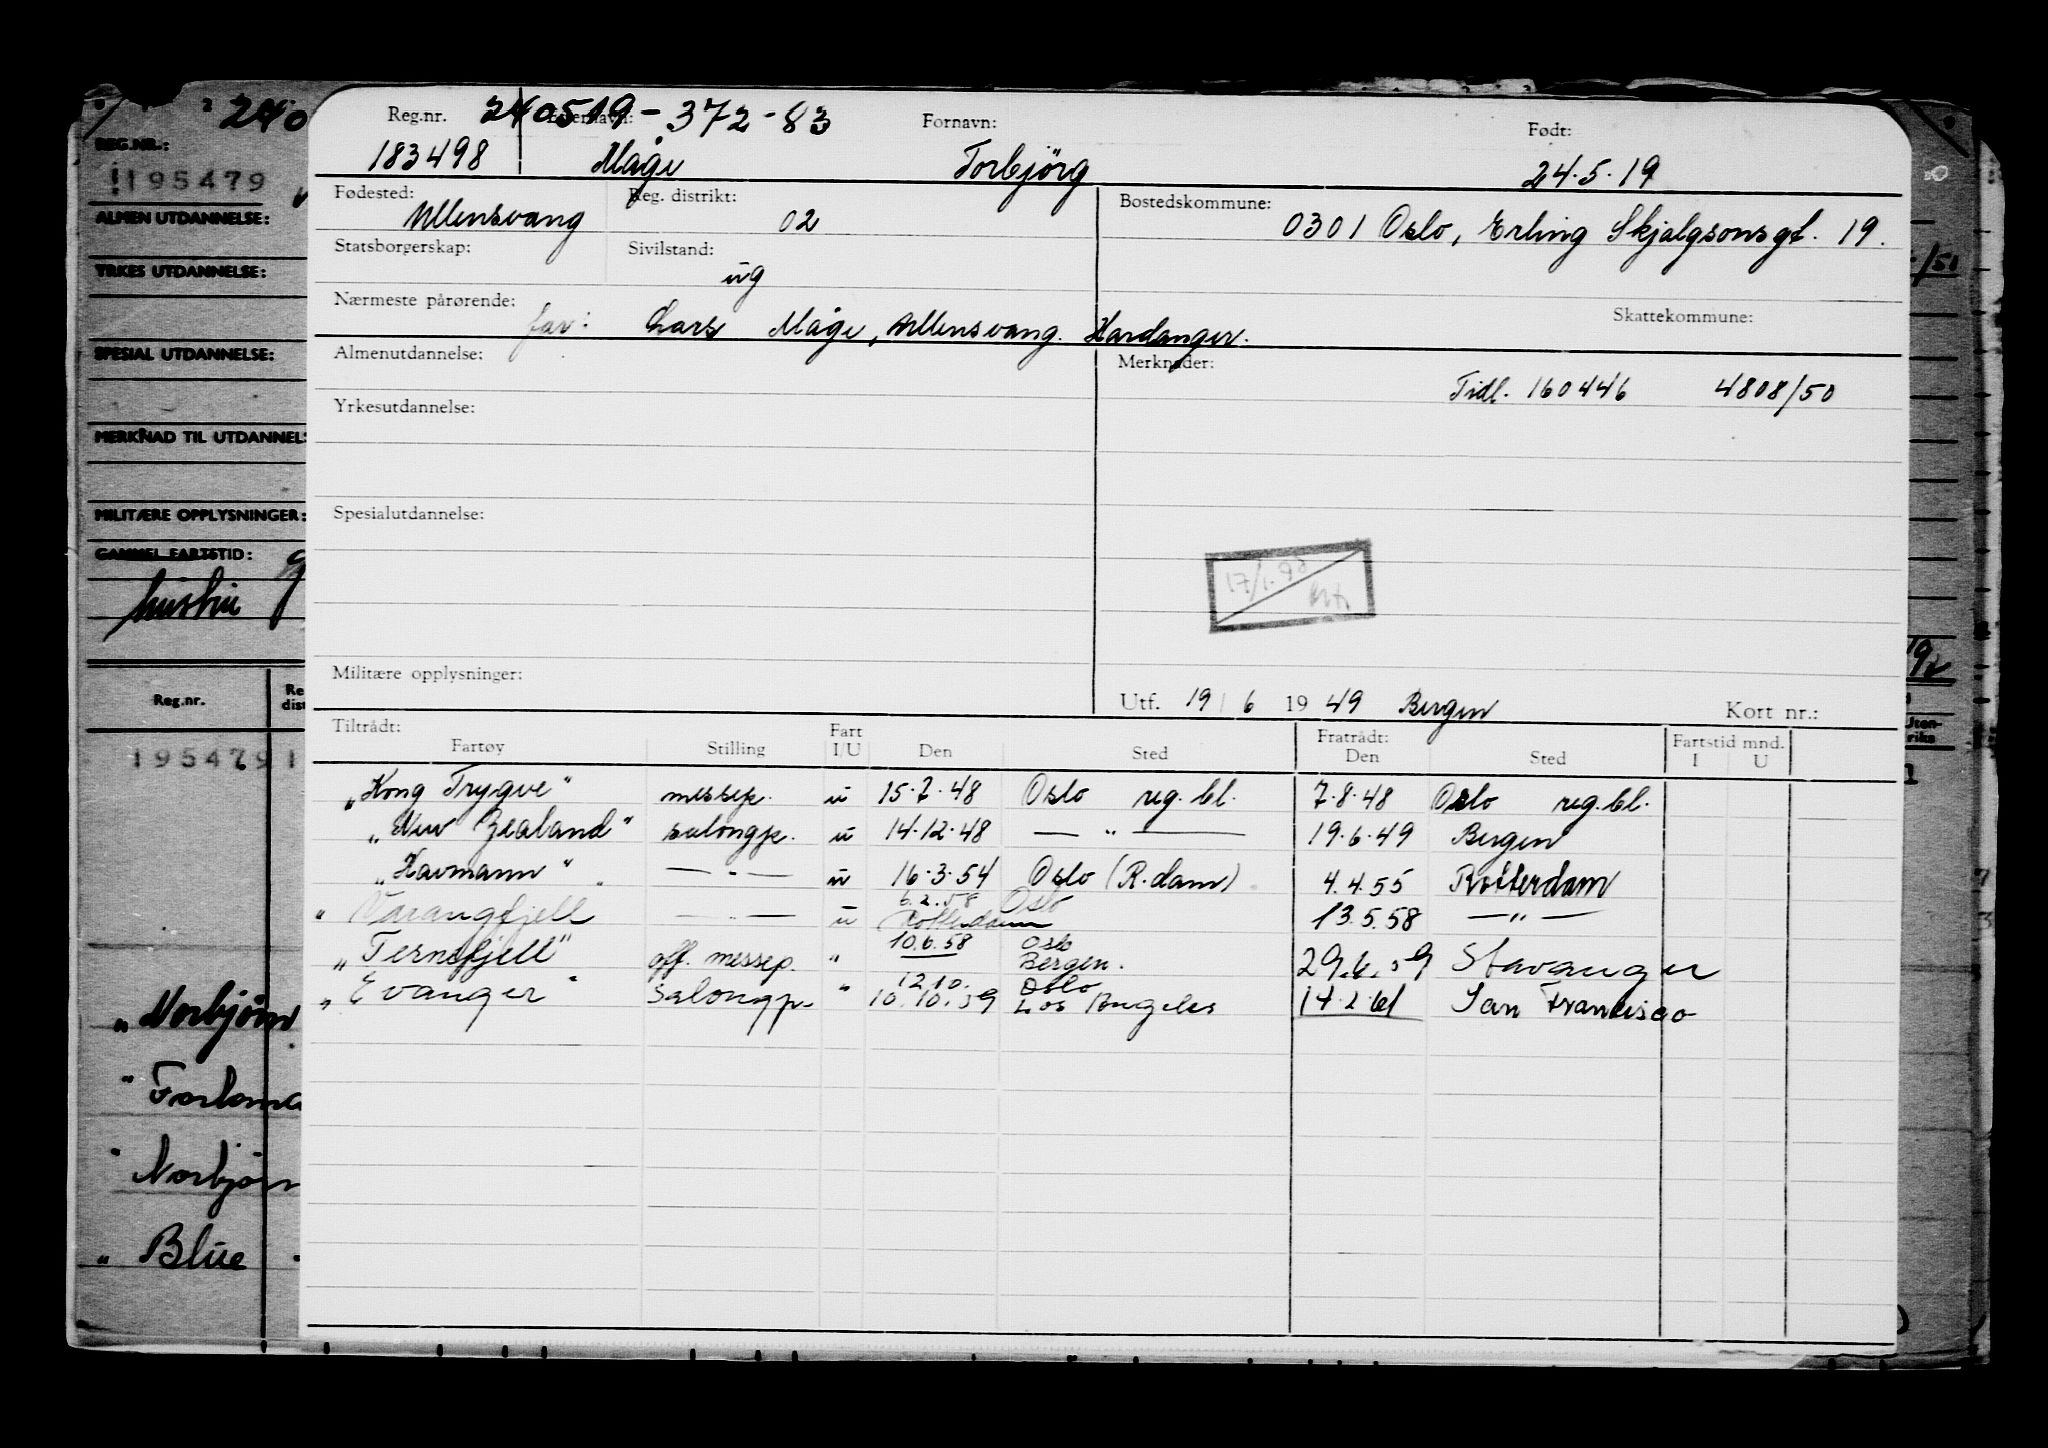 Reg.nr. 240519-372-83 Fornavn: Født:
183498 Måge Torbjörg 24.5.19
Fødested: Ullensvang Reg. distrikt: 02 Bostedskommune: 0301 Oslo, Erling Skjalgsonsgt. 19.
Statsborgerskap: Sivilstand: ug
Nærmeste pårørende: far: Lars Måge, Ullensvang. Hardanger. Skattekommune:
Almenutdannelse: Merknader: Tidl. 160446 4808/50
Yrkesutdannelse:
Spesialutdannelse:
17/1.
Militære opplysninger:
Utf. 19/6 1949 Bergen Kort nr.:
Tiltrådt: Fart Fratrådt: Fartstid mnd.
Fartøy Stilling I/U Den Sted Den Sted I U
"Kong Trygve" messep. u 15.7.48 Oslo reg.bl. 7.8.48 Oslo reg.bl.
"New Zealand" salongp. u 14.12.48 — " — 19.6.49 Bergen
"Havmann" — " — u 16.3.54 Oslo (R.dam) 4.4.55 Rotterdam
6.2.58 Oslo
" Karangfjell — " — u Rotterdam 13.5.58 — " —
10.6.58 Oslo
"Ternefjell" off. messep. " Bergen. 29.6.59 Stavanger
12.10. Oslo
"Evanger" salongp. " 10.10.59 Los Angeles 14.2.61 San Francisco
240
REG.NR.:
!195479
ALMEN UTDANNELSE:
YRKES UTDANNELSE:
SPESIAL UTDANNELSE:
MERKNAD TIL UTDANNELS
MILITÆRE OPPLYSNINGER:
GAMMEL FARTSTID:
Reg.nr. Re
dist
195479 1
"Norbjørn
"
"Norbjørn
"Blue
/51
Uten-
riks